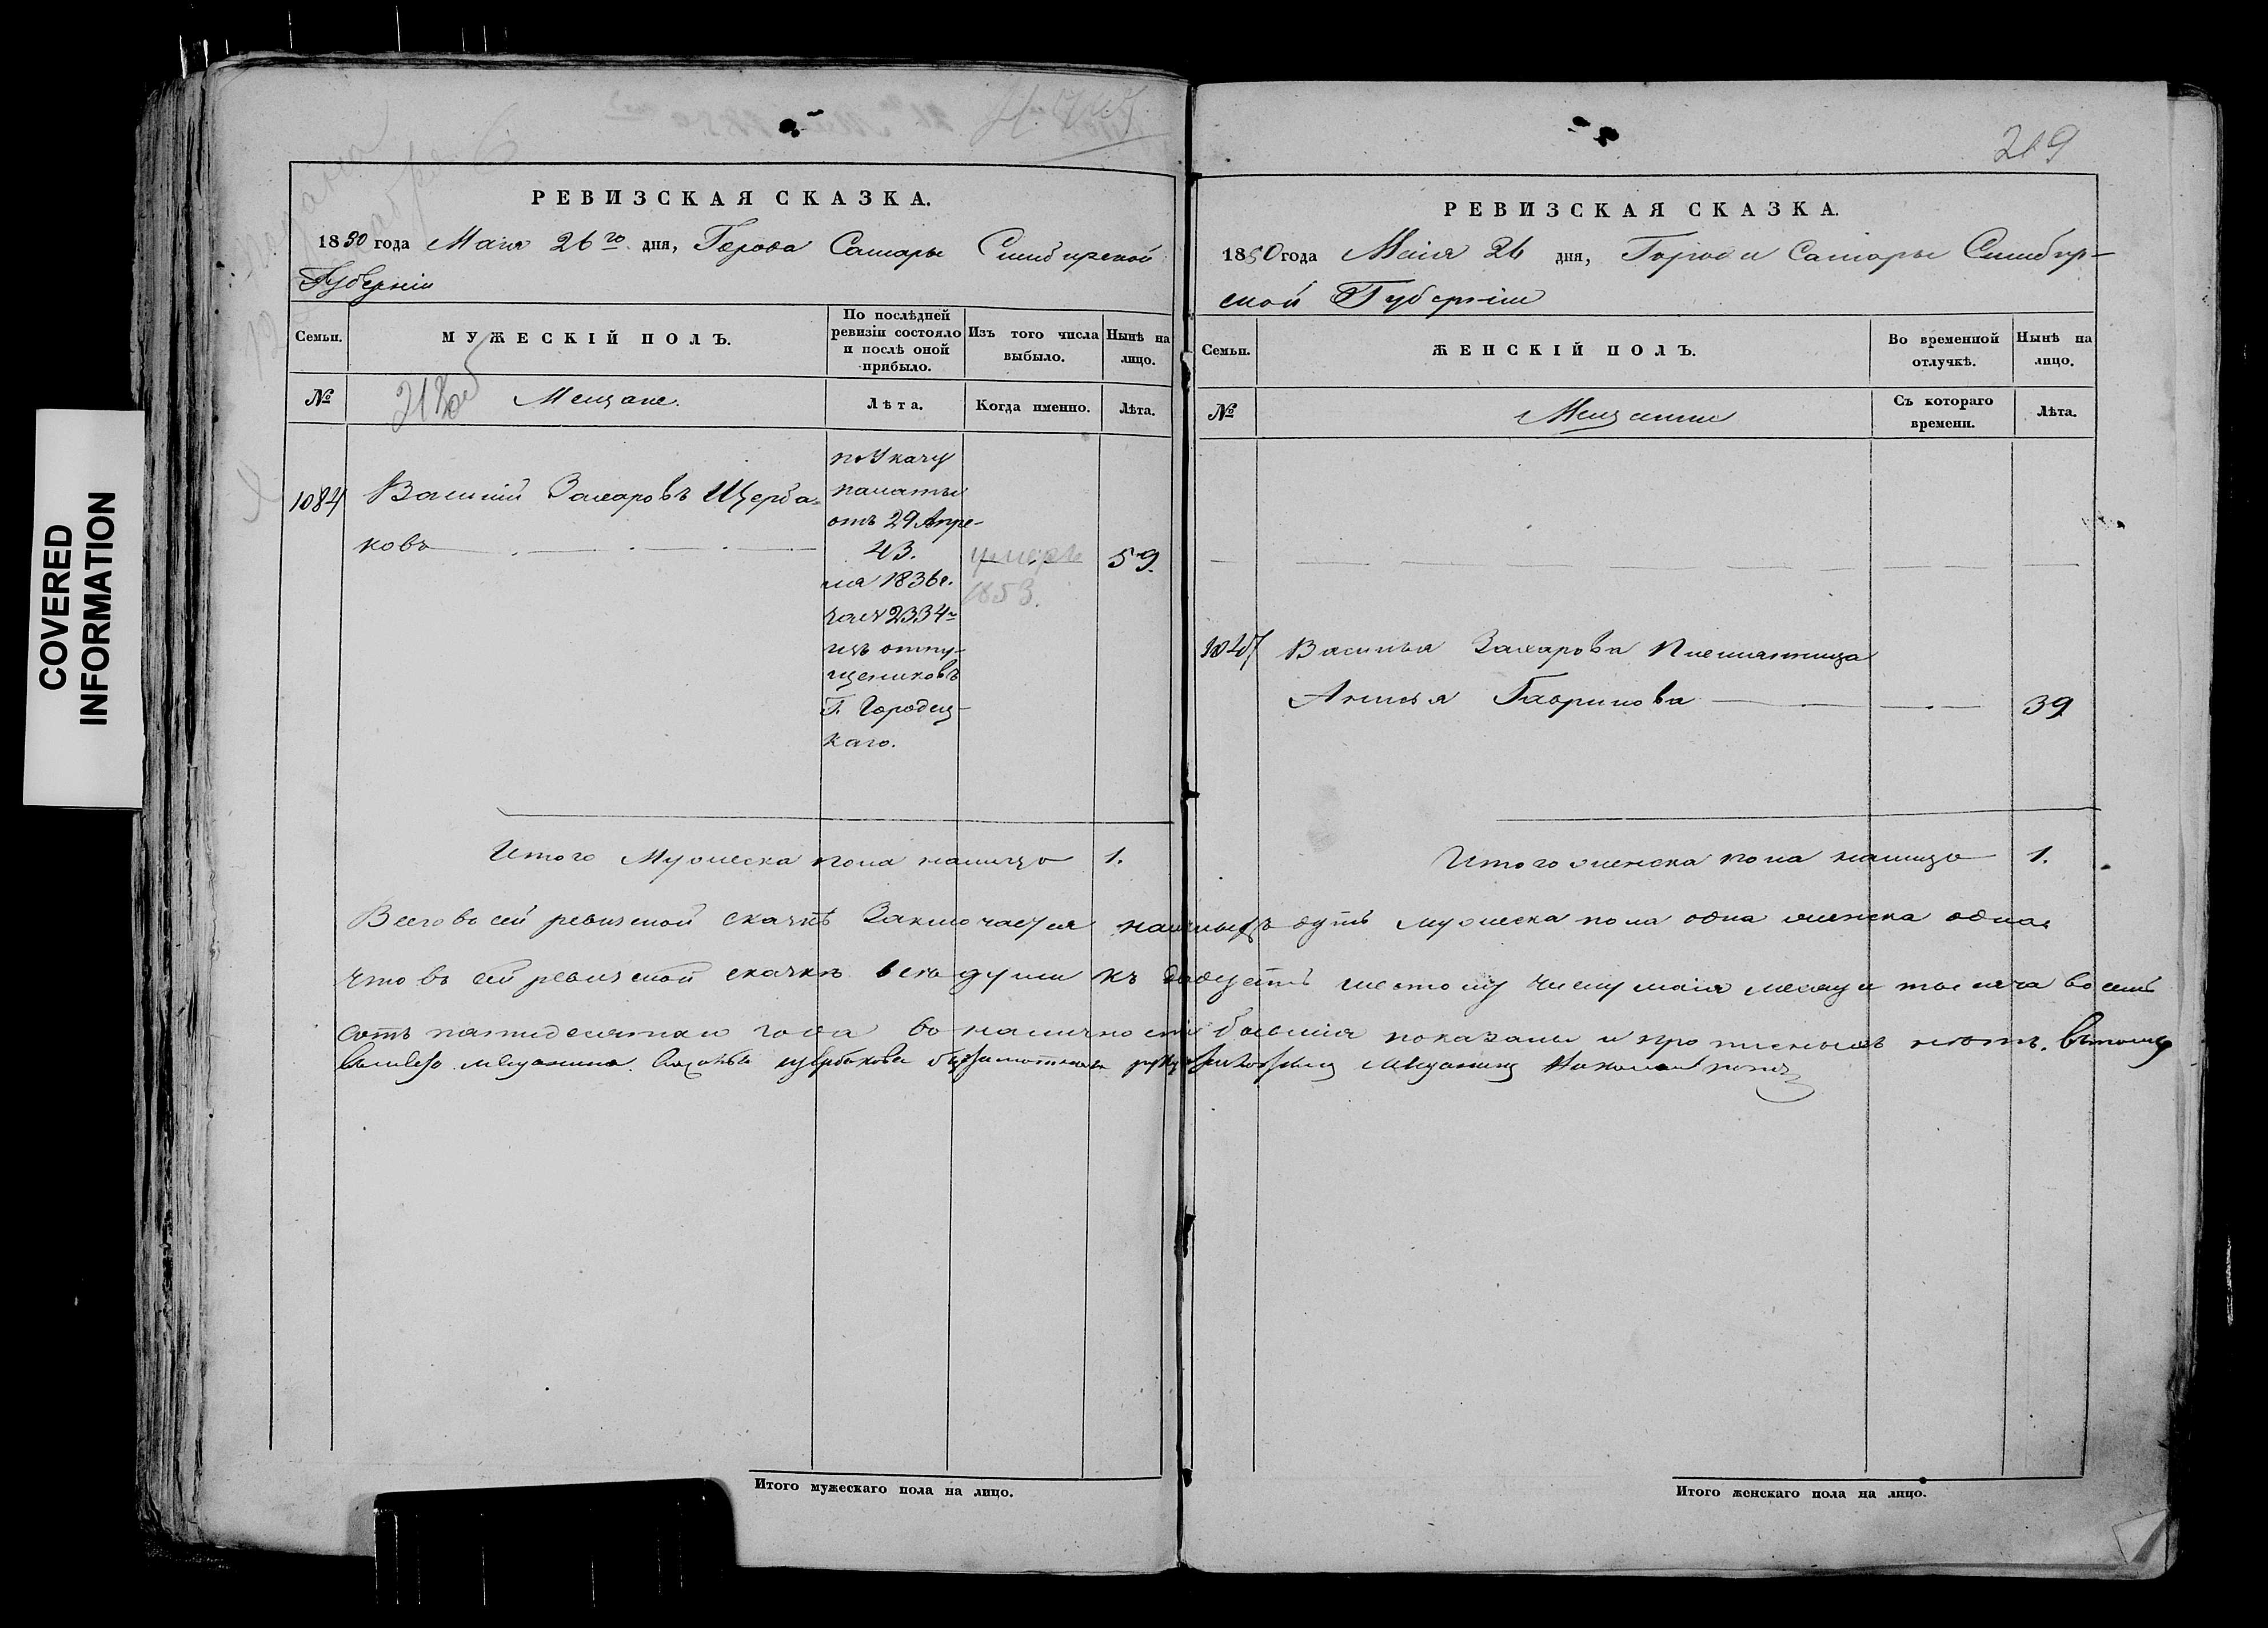 COVERED
INFORMATION
РЕВИЗСКАЯ СКАЗКА.
1850 года Маія 26го дня, Города Самары Симбирской
Губерніи
Семьи.
МУЖЕСКІЙ ПОЛЪ.
По послѣдней
ревизіи состояло
и послѣ оной
прибыло.
Изъ того числа
выбыло.
Нынѣ на
лицо.
№
Мещане.
Лѣта.
Когда именно.
Лѣта.
1084
Василій Захаровъ Щерба-
ковъ
по Указу
палаты
отъ 29 Апре-
43.
ля 1836 г.
за № 2334
изъ отпу-
щениковъ
Г. Городец-
каго.
умеръ
1853.
59.
Итого Мужеска пола налицо 1.
РЕВИЗСКАЯ СКАЗКА.
219
1850 года Маія 26 дня, Города Самары Симбир-
ской Губерніи
Семьи.
ЖЕНСКІЙ ПОЛЪ.
Во временной
отлучкѣ.
Нынѣ на
лицо.
№
Мещанки
Съ котораго
времени.
Лѣта.
1084
Василья Захарова
Анисья Гаврилова 39
Итого женска пола налицо 1.
Всего въ сей ревизской сказкѣ Заключается наличныхъ душъ мужеска пола одна женска одна.
Что въ сей ревизской сказкѣ всѣ души къ двадцать шестому числу маія месяца тысяча восемь
сотъ пятидесятаго года въ наличности бывшія показаны и прописныхъ нѣтъ. Втомъ
вместо мещанина Щербакова мещанинъ
Итого мужескаго пола на лицо.
Итого женскаго пола на лицо.